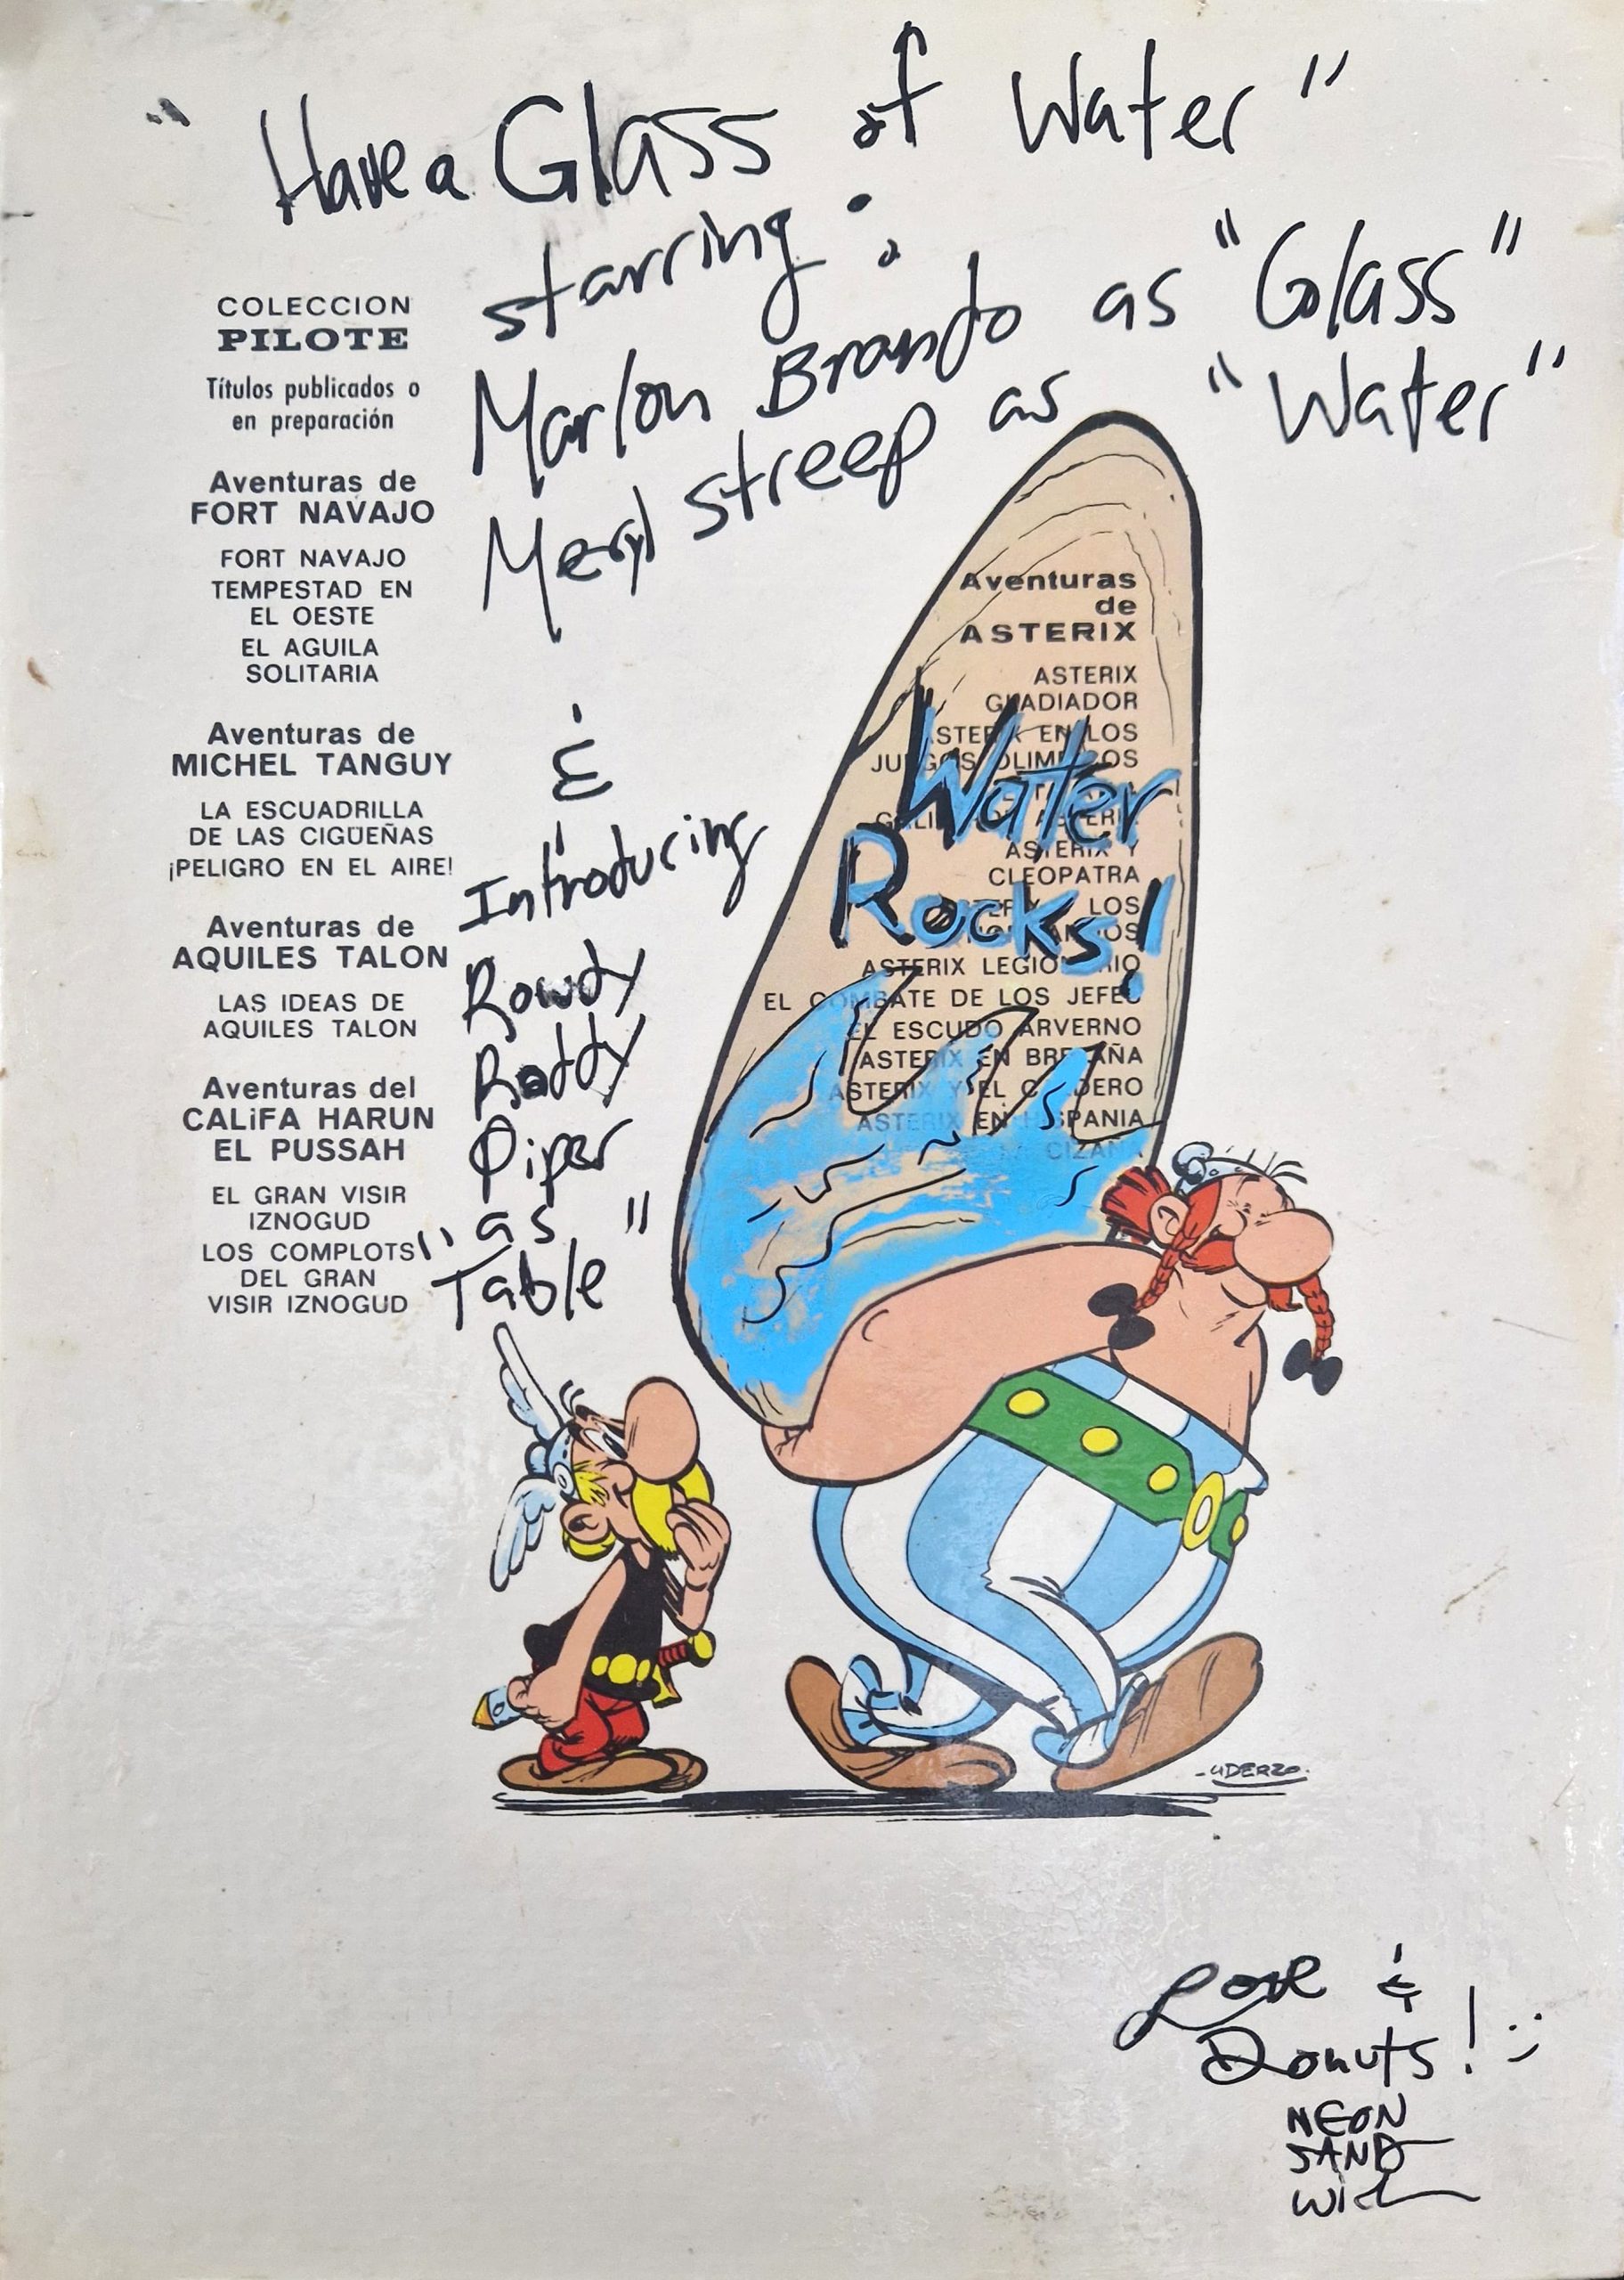 "Have a Glass of Water"
starring:
Marlon Brando as "Glass"
Meryl Streep as "Water"
&
Introducing
Rowdy
Roddy
Piper
as
"Table"
COLECCION
PILOTE
Títulos publicados o
en preparación
Aventuras de
FORT NAVAJO
FORT NAVAJO
TEMPESTAD EN
EL OESTE
EL AGUILA
SOLITARIA
Aventuras de
MICHEL TANGUY
LA ESCUADRILLA
DE LAS CIGÜEÑAS
¡PELIGRO EN EL AIRE!
Aventuras de
AQUILES TALON
LAS IDEAS DE
AQUILES TALON
Aventuras del
CALiFA HARUN
EL PUSSAH
EL GRAN VISIR
IZNOGUD
LOS COMPLOTS
DEL GRAN
VISIR IZNOGUD
Aventuras
de
ASTERIX
ASTERIX
GLADIADOR
ASTERIX EN LOS
JUEGOS OLIMPICOS
ASTERIX Y
CLEOPATRA
LOS
ASTERIX LEGIONARIO
EL COMBATE DE LOS JEFES
EL ESCUDO ARVERNO
ASTERIX EN BRETAÑA
ASTERIX Y EL CALDERO
ASTERIX EN HISPANIA
CIZAÑA
Water
Rocks!
-UDERZO-
Love &
Donuts! :)
NEON
SAND
WICH